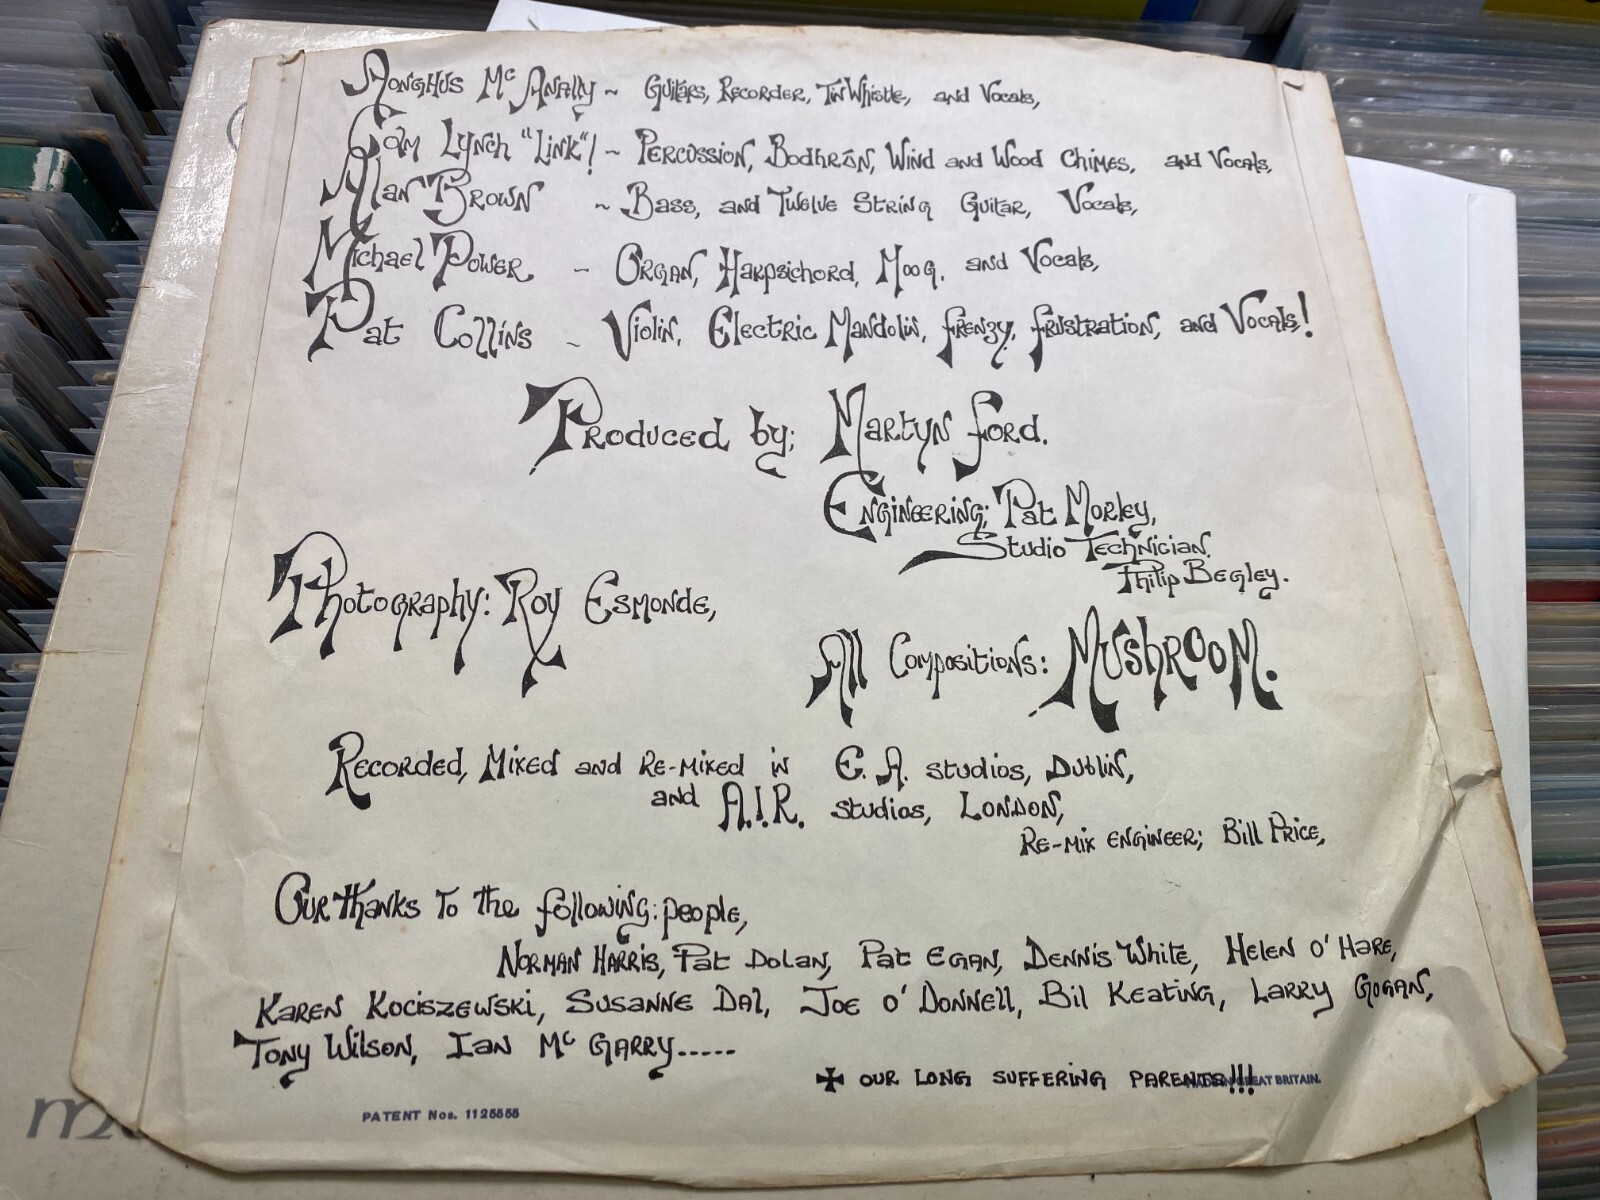 Aonghus Mc Anally ~ Guitars, Recorder, Tin Whistle, and Vocals,
Colm Lynch "Link"! ~ Percussion, Bodhrán, Wind and Wood Chimes, and Vocals,
Alan Brown ~ Bass, and Twelve String Guitar, Vocals,
Michael Power ~ Organ, Harpsichord, Moog, and Vocals,
Pat Collins ~ Violin, Electric Mandolin, Frenzy, Frustration, and Vocals!
Produced by; Martyn Ford.
Engineering; Pat Morley,
Studio Technician.
Philip Begley.
Photography: Roy Esmonde,
All Compositions: Mushroom.
Recorded, Mixed and Re-mixed in E. A. studios, Dublin,
and A.I.R. studios, London,
Re-mix engineer; Bill Price,
Our thanks to the following: people,
Norman Harris, Pat Dolan, Pat Egan, Dennis White, Helen O'Hare,
Karen Kociszewski, Susanne Dal, Joe O'Donnell, Bil Keating, Larry Gogan,
Tony Wilson, Ian Mc Garry.....
✠ our long suffering parents!!!
GREAT BRITAIN.
PATENT Nos. 1125555